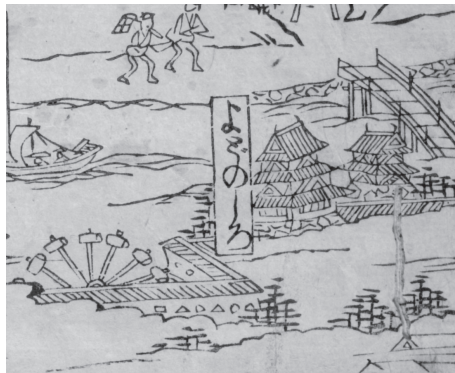 よどのしろ